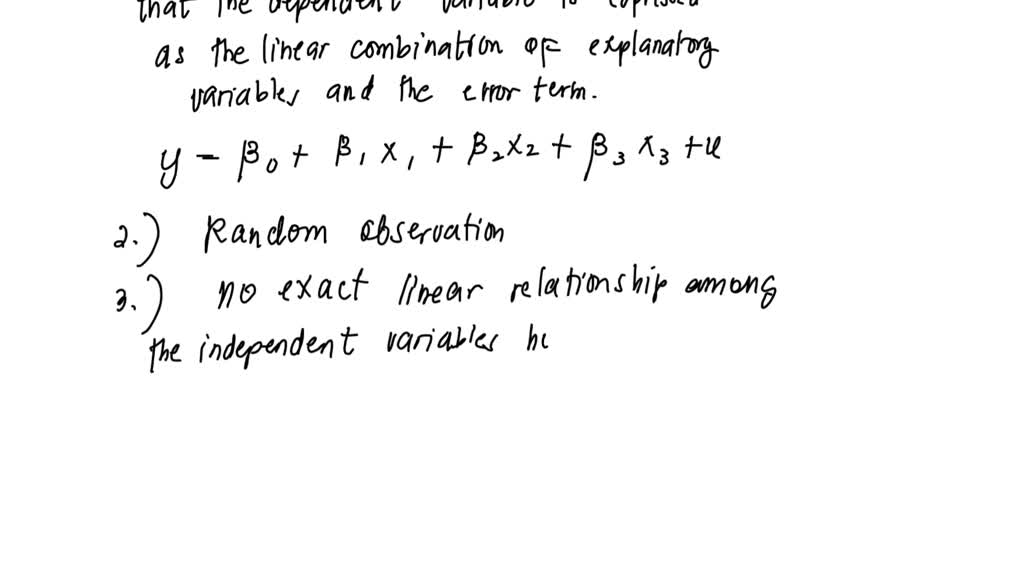 that the dependent variable is
as the linear combination of explanatory
variables and the error term.
y = β₀ + β₁ x₁ + β₂x₂ + β₃ x₃ + u
2.) Random observation
3.) no exact linear relationship among
the independent variables